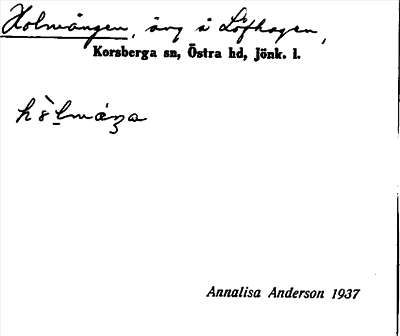 Holmängen, äng å Löfhagen,
Korsberga sn, Östra hd, Jönk. l.
Annalisa Anderson 1937